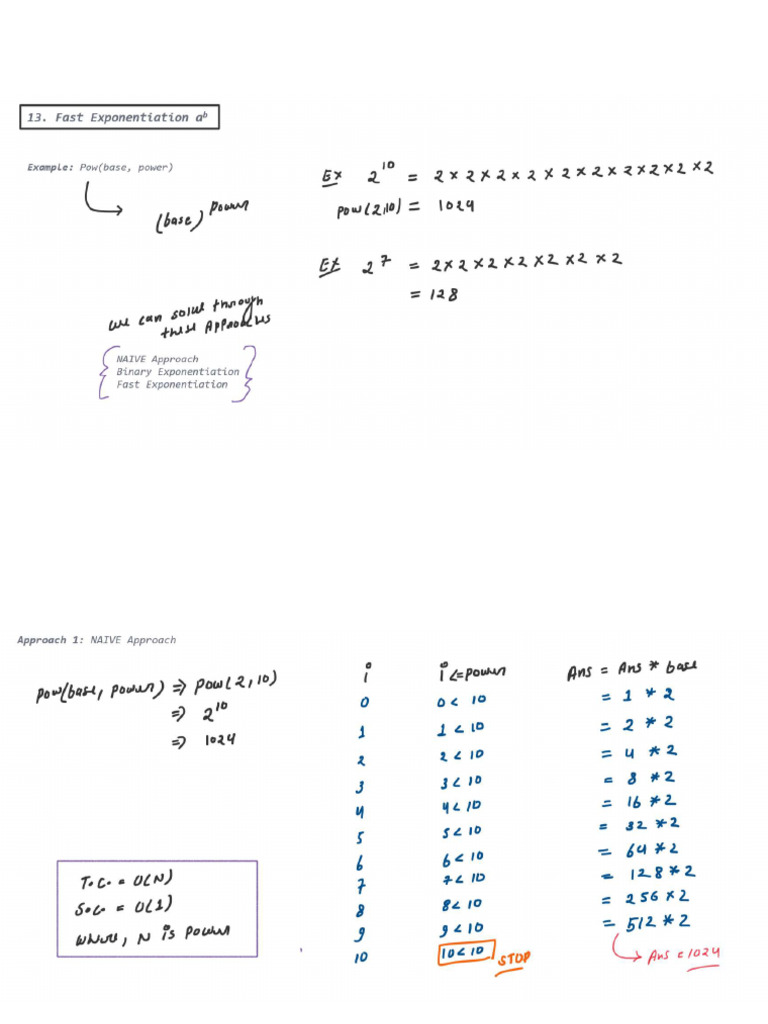 13. Fast Exponentiation aᵇ
Example: Pow(base, power)
(base)^power
we can solve through
these Approaches
NAIVE Approach
Binary Exponentiation
Fast Exponentiation
Ex 2^10 = 2 × 2 × 2 × 2 × 2 × 2 × 2 × 2 × 2 × 2
pow(2,10) = 1024
Ex 2^7 = 2 × 2 × 2 × 2 × 2 × 2 × 2
= 128
Approach 1: NAIVE Approach
pow(base, power) ⇒ pow(2, 10)
⇒ 2^10
⇒ 1024
T.C. = O(N)
S.C. = O(1)
where, N is power
i i<=power Ans = Ans * base
0 0 < 10 = 1 * 2
1 1 < 10 = 2 * 2
2 2 < 10 = 4 * 2
3 3 < 10 = 8 * 2
4 4 < 10 = 16 * 2
5 5 < 10 = 32 * 2
6 6 < 10 = 64 * 2
7 7 < 10 = 128 * 2
8 8 < 10 = 256 * 2
9 9 < 10 = 512 * 2
10 10 < 10 STOP Ans = 1024